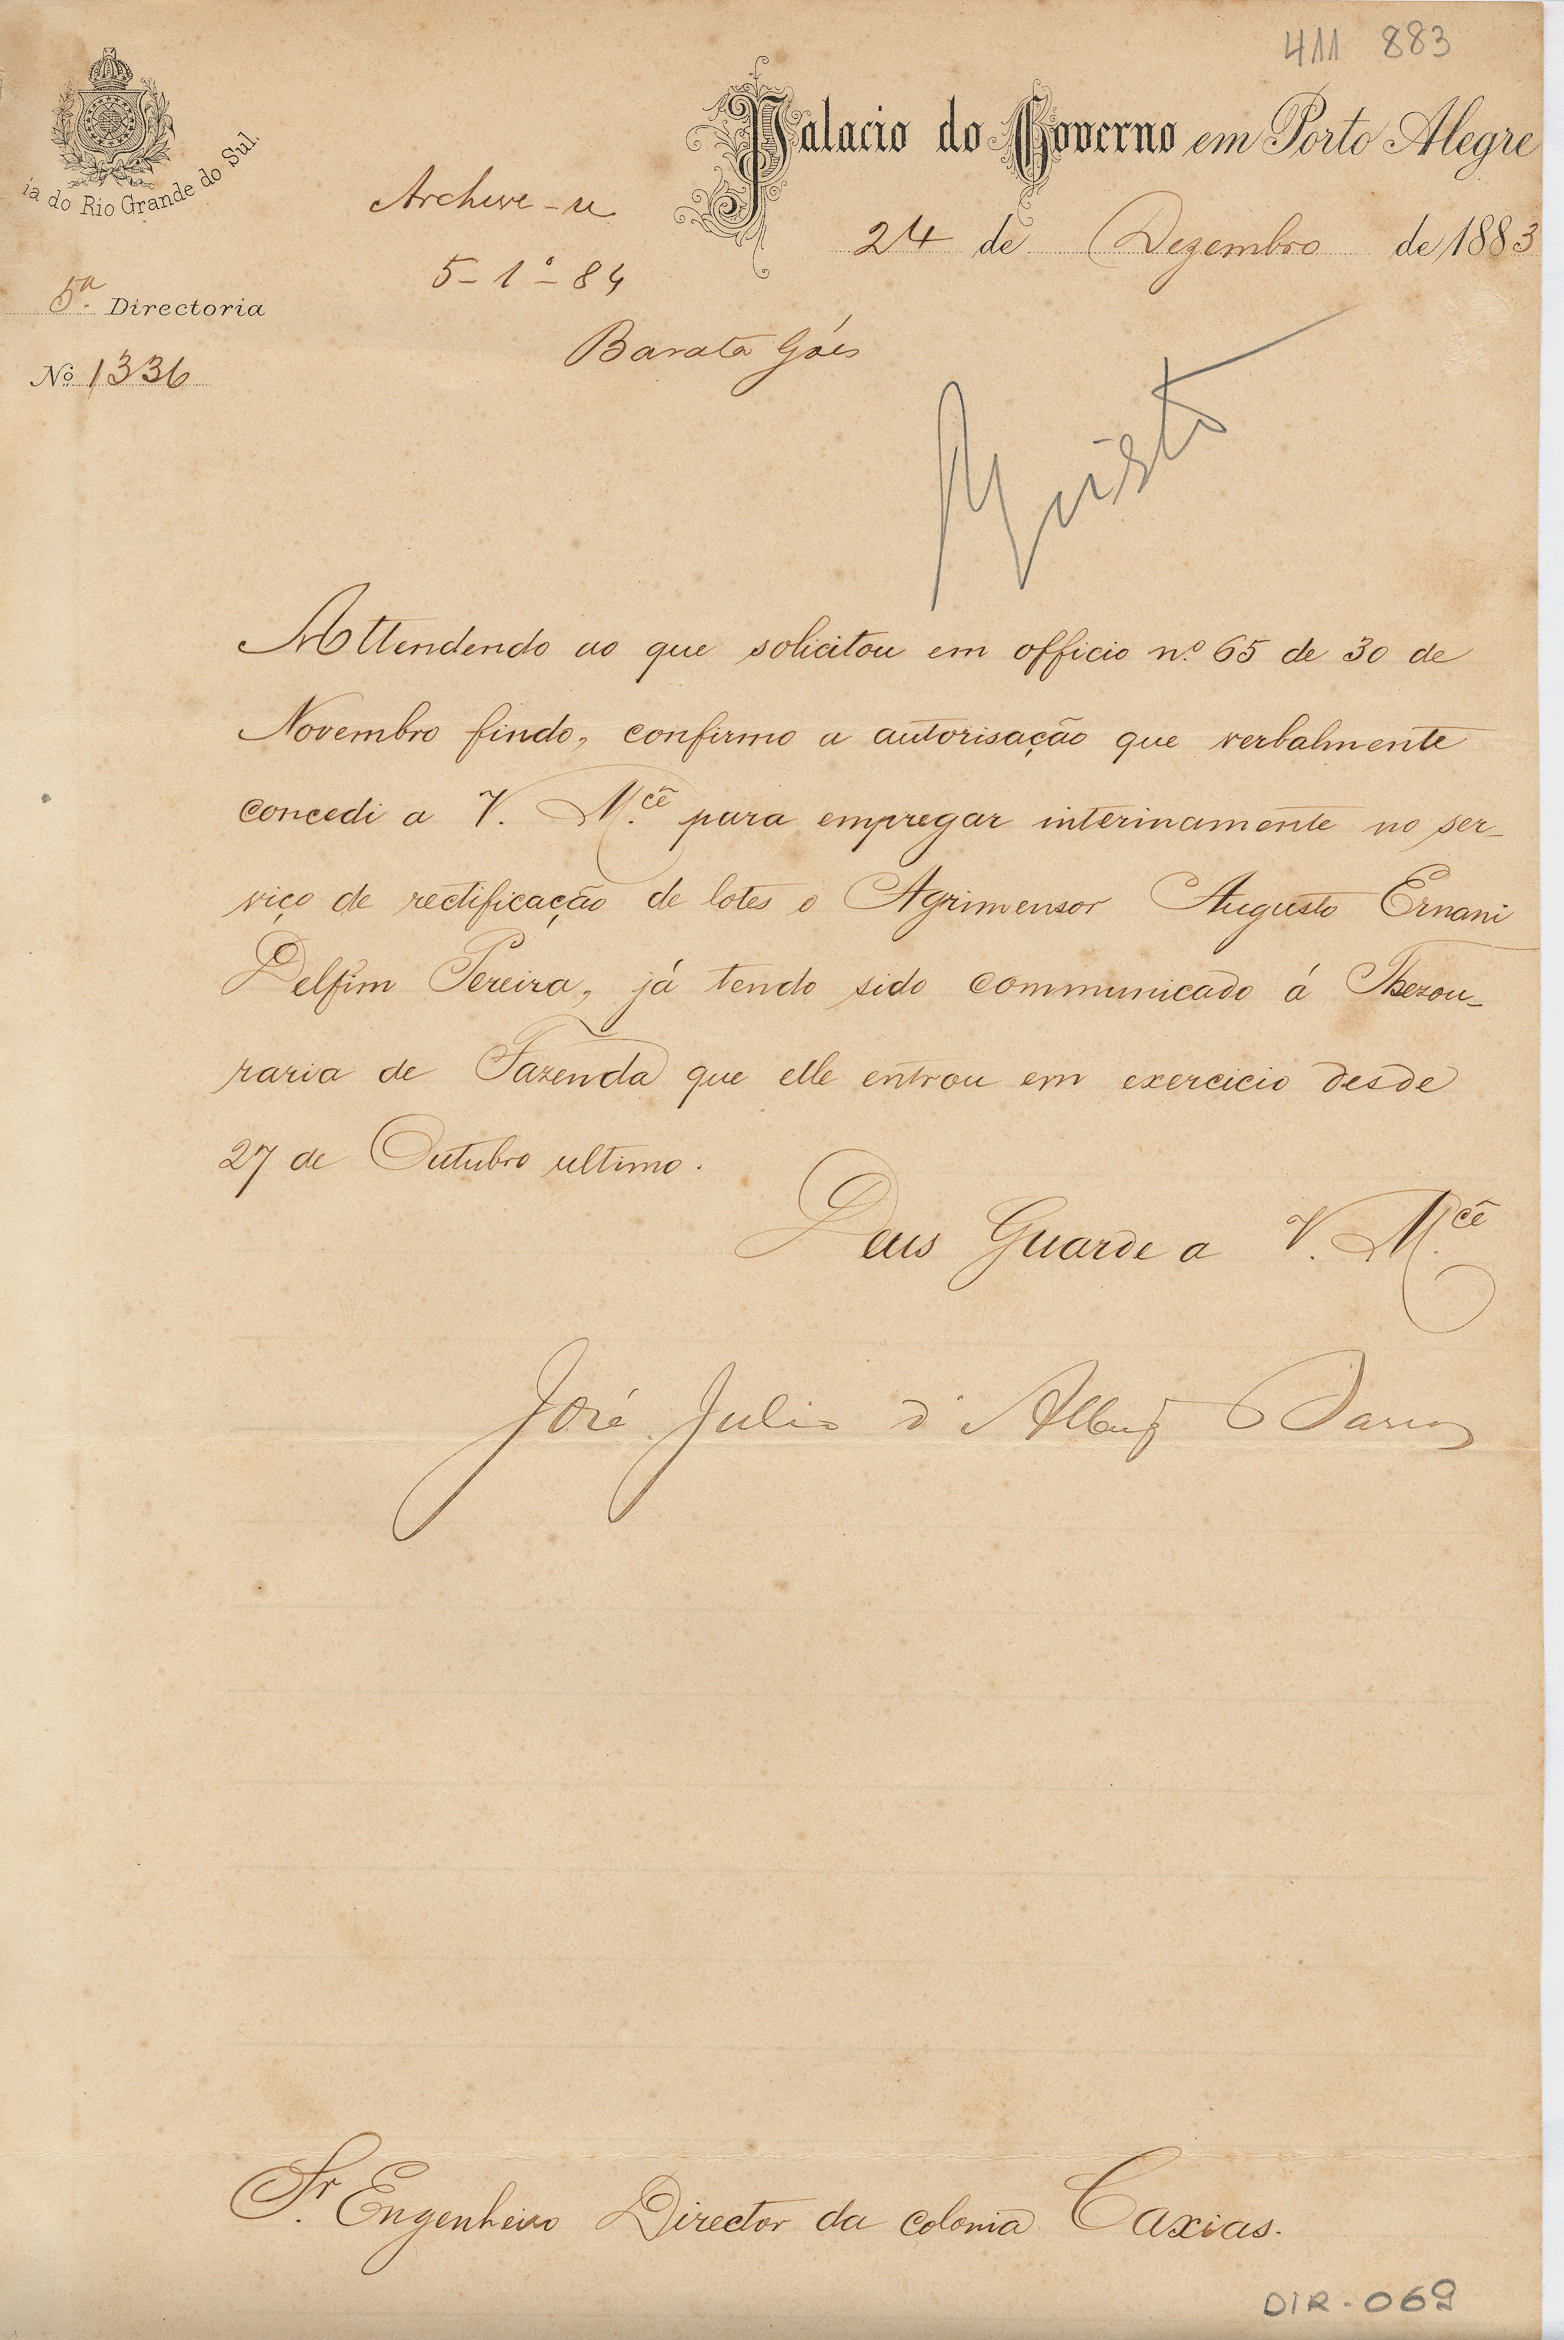 411 883
Palacio do Governo em Porto Alegre
24 de Dezembro de 1883
ia do Rio Grande do Sul.
Archive-se
5-1º-84
Barata Góes
5ª Directoria
Nº 1336
Attendendo ao que solicitou em officio nº 65 de 30 de
Novembro findo, confirmo a autorisação que verbalmente
concedi a V. M.cê para empregar interinamente no ser-
viço de rectificação de lotes o Agrimensor Augusto Ernani
Delfim Pereira, já tendo sido communicado á Thezou-
raria de Fazenda que elle entrou em exercicio desde
27 de Outubro ultimo.
Deus Guarde a V. M.cê
José Julio d'Albuq Barros
Sr. Engenheiro Director da colonia Caxias.
DIR-069